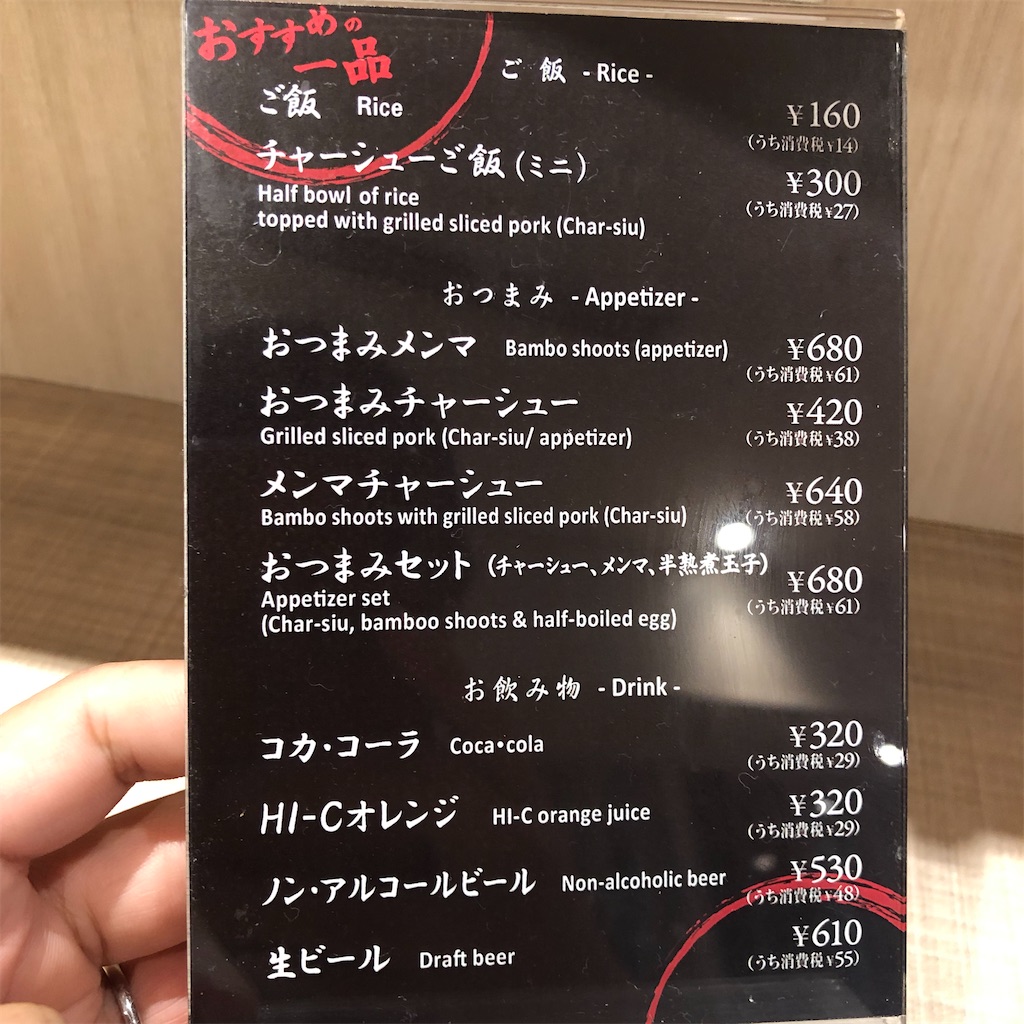 おすすめの
一品
ご飯 - Rice -
ご飯 Rice ¥160
(うち消費税¥14)
チャーシューご飯(ミニ) ¥300
Half bowl of rice (うち消費税¥27)
topped with grilled sliced pork (Char-siu)
おつまみ - Appetizer -
おつまみメンマ Bambo shoots (appetizer) ¥680
(うち消費税¥61)
おつまみチャーシュー ¥420
Grilled sliced pork (Char-siu/ appetizer) (うち消費税¥38)
メンマチャーシュー ¥640
Bambo shoots with grilled sliced pork (Char-siu) (うち消費税¥58)
おつまみセット (チャーシュー、メンマ、半熟煮玉子) ¥680
Appetizer set (うち消費税¥61)
(Char-siu, bamboo shoots & half-boiled egg)
お飲み物 - Drink -
コカ・コーラ Coca•cola ¥320
(うち消費税¥29)
HI-Cオレンジ HI-C orange juice ¥320
(うち消費税¥29)
ノン・アルコールビール Non-alcoholic beer ¥530
(うち消費税¥48)
生ビール Draft beer ¥610
(うち消費税¥55)